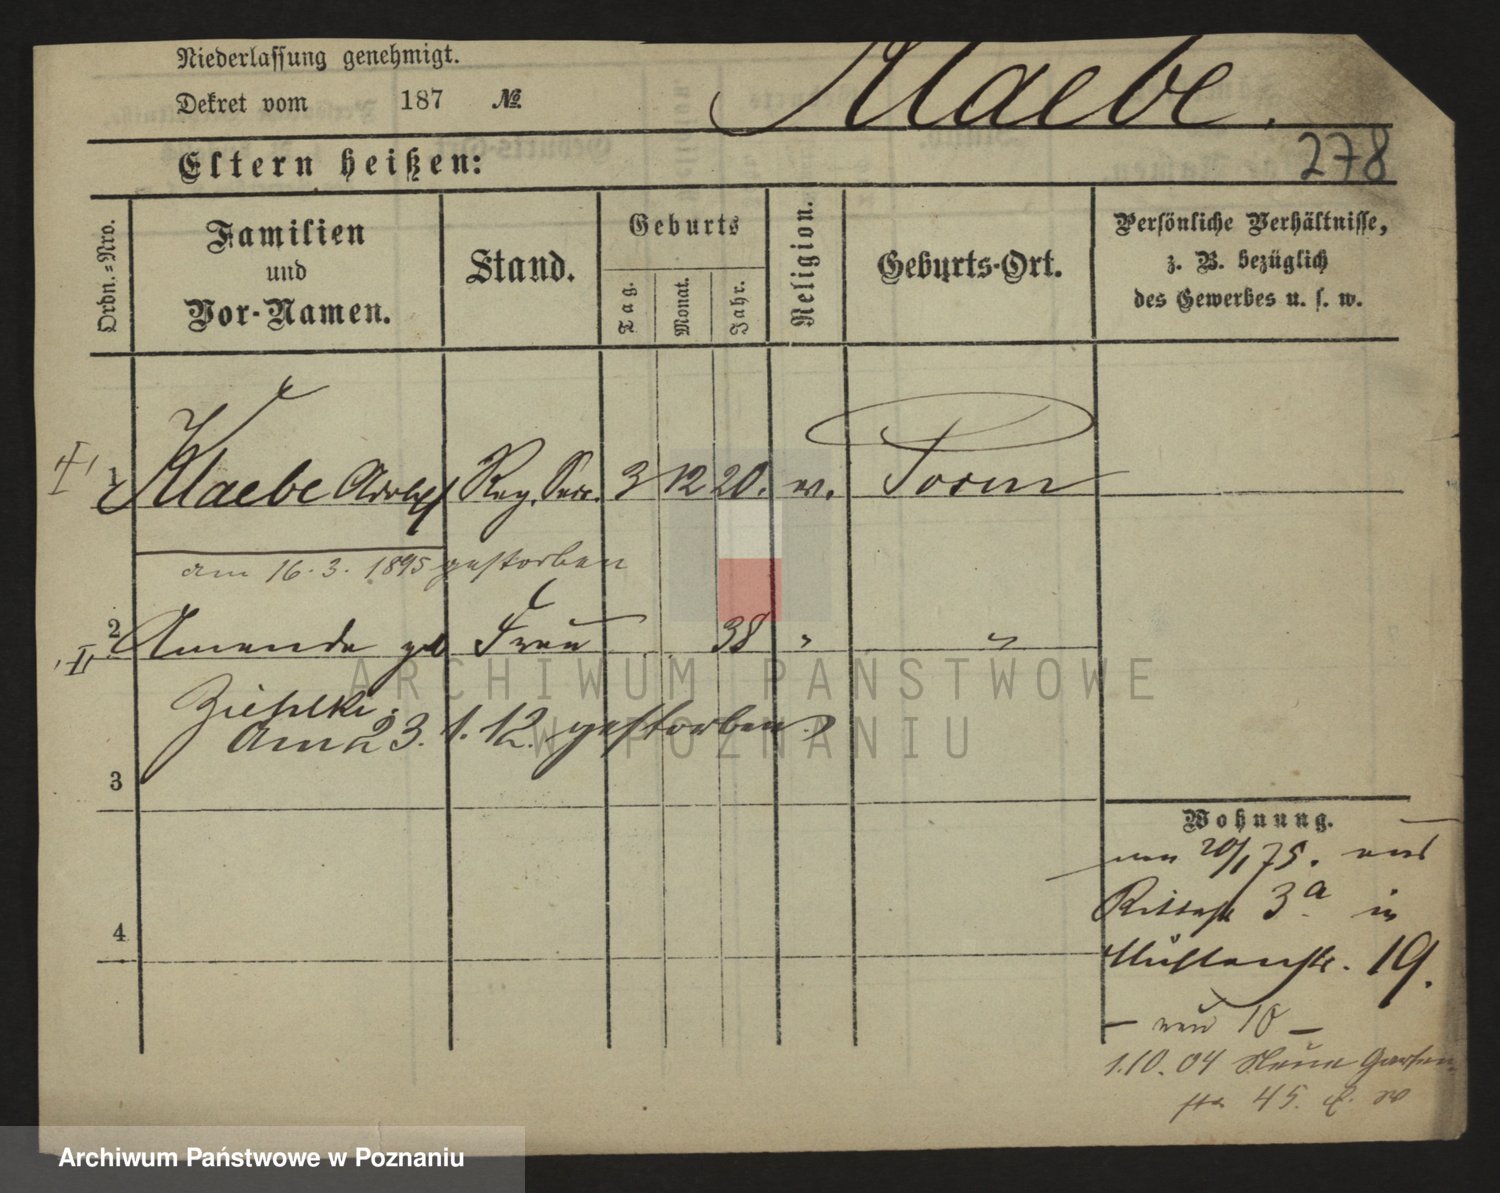 Niederlassung genehmigt.
Dekret vom 187 № Klaebe.
278
Eltern heißen:
Ordn.=Nro.
Familien
und
Vor-Namen.
Stand.
Geburts
Tag.
Monat.
Jahr.
Religion.
Geburts-Ort.
Persönliche Verhältnisse,
z. B. bezüglich
des Gewerbes u. s. w.
I 1 Klaebe Adolph Reg. Secr. 3 12 20. ev. Posen
am 16.3.1895 gestorben
II 2 Amanda geb Frau 38 " "
Ziehlke.
Am 23.1.12. gestorben.
3
4
Wohnung.
am 20/1 75. aus
Ritterstr 3a in
Mühlenstr. 19.
– nun 10 –
1.10.04 Neue Garten-
str 45.
ARCHIWUM PAŃSTWOWE
W POZNANIU
Archiwum Państwowe w Poznaniu